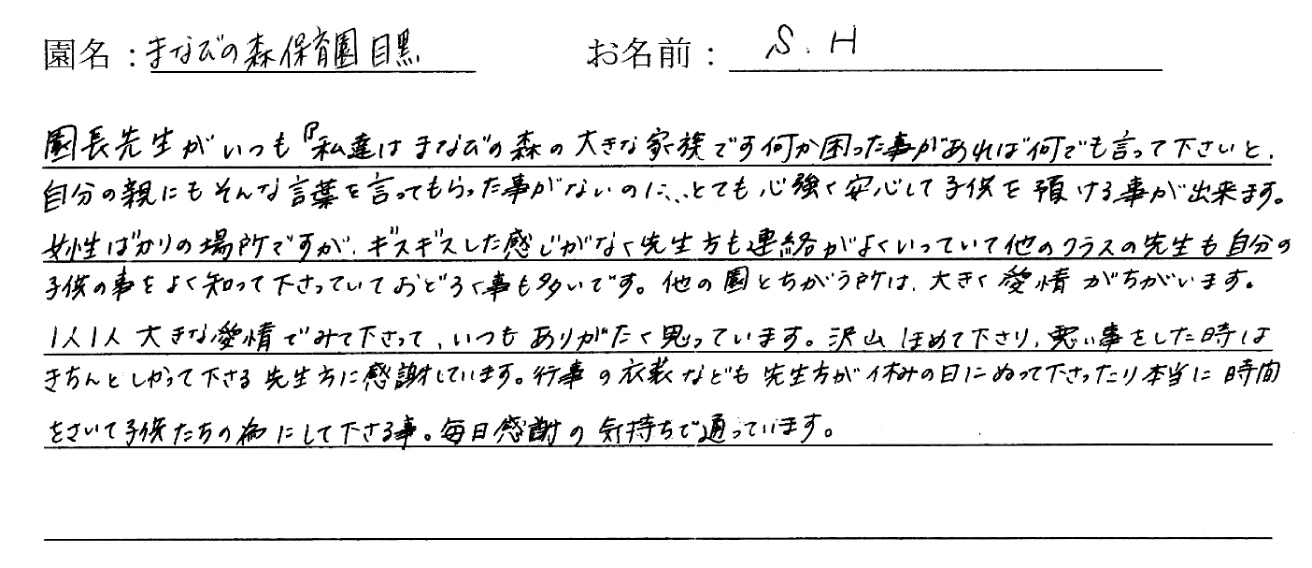 園名：まなびの森保育園目黒 お名前：S.H
園長先生がいつも『私達はまなびの森の大きな家族です何か困った事があれば何でも言って下さいと、
自分の親にもそんな言葉を言ってもらった事がないのに、、とても心強く安心して子供を預ける事が出来ます。
女性ばかりの場所ですが、ギスギスした感じがなく先生方も連絡がよくいっていて他のクラスの先生も自分の
子供の事をよく知って下さっていておどろく事も多いです。他の園とちがう所は、大きく愛情がちがいます。
1人1人大きな愛情でみて下さって、いつもありがたく思っています。沢山ほめて下さり、悪い事をした時は
きちんとしかって下さる先生方に感謝しています。行事の衣装なども先生方が休みの日にぬって下さったり本当に時間
をさいて子供たちの為にして下さる事。毎日感謝の気持ちで通っています。